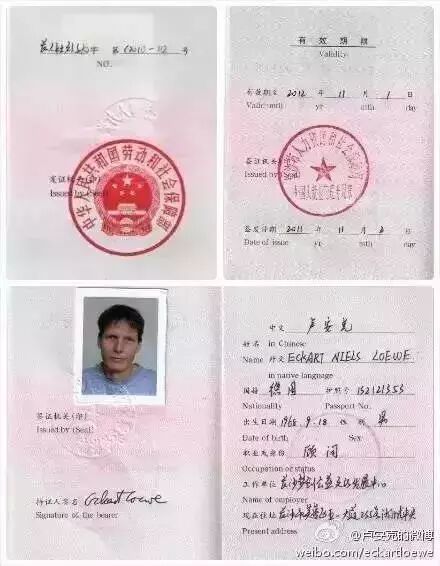 NO.
中华人民共和国劳动和社会保障部
发证机关(印)
Issued by (Seal)
有 效 期 限
Validity
有效期至 2012 年 11 月 1 日
Valid until yr mth day
签证机关(印)
Issued by (Seal)
签发日期 2011 年 11 月 2 日
Date of issue yr mth day
签证机关(印)
Issued by (Seal)
持证人签名 Eckart Loewe
Signature of the bearer
中文 卢安克
姓名 in Chinese
Name 外文 ECKART NIELS LOEWE
in native language
国籍 德国 护照号
Nationality Passport No.
出生日期 1968.9.18 性别 男
Date of birth Sex
职业或身份 顾问
Occupation or status
工作单位
Name of employer
现在住址
Present address
@卢安克的微博
weibo.com/eckartloewe